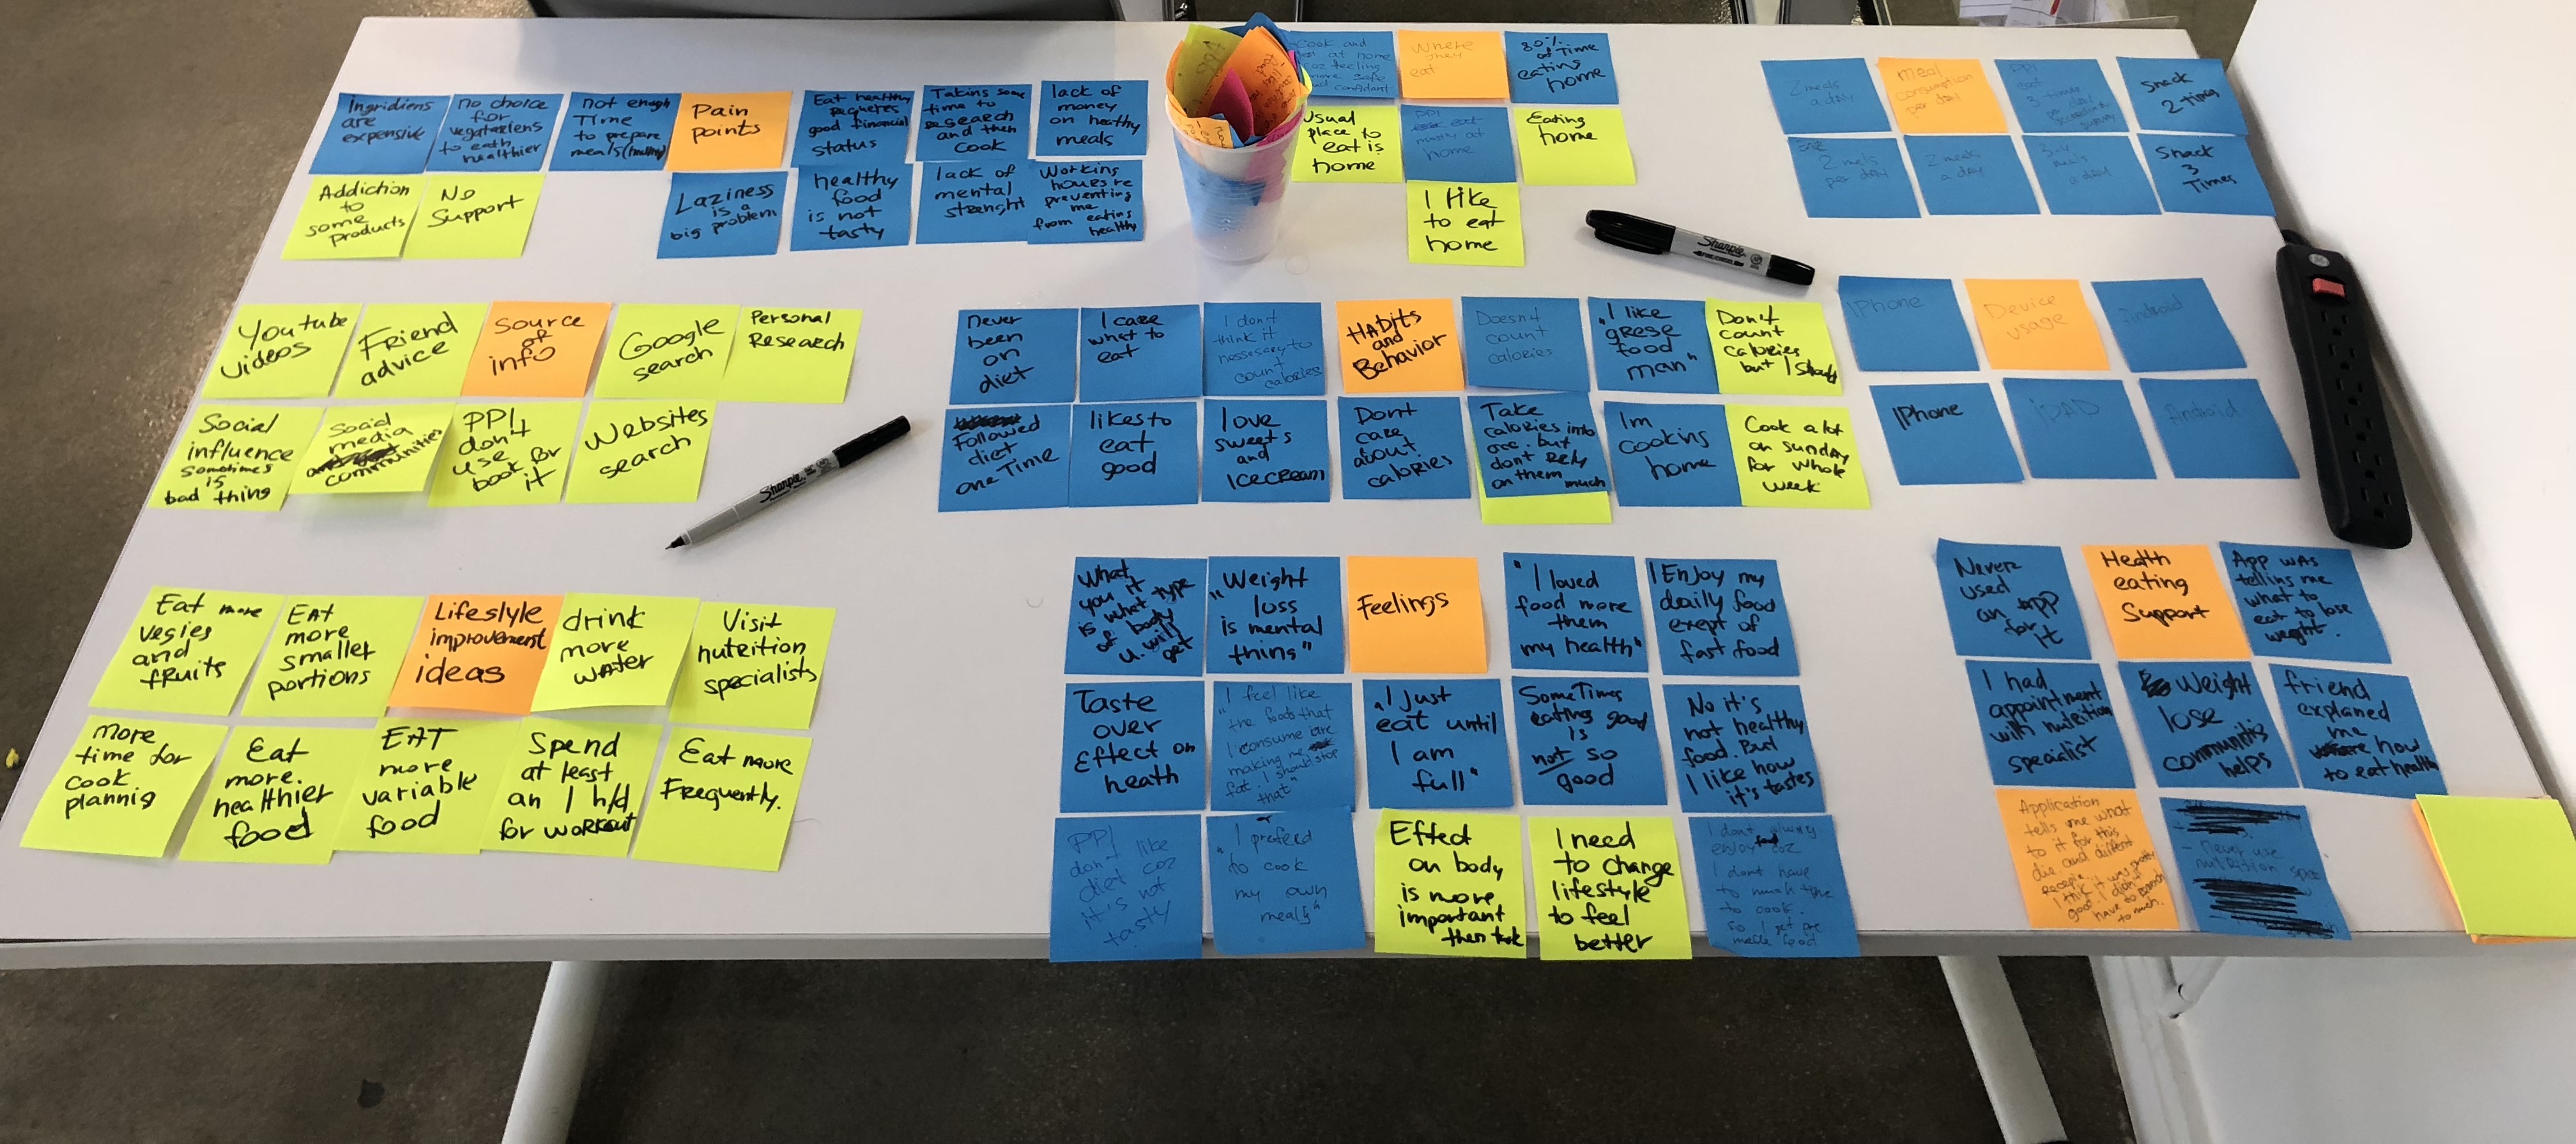 Ingridiens
are
expensive
no choice
for
vegetariens
to eat
healthier
not enough
Time
to prepare
meals (healthy)
Pain
points
Eat healthy
requeres
good financial
status
Taking some
time to
Research
and then
cook
lack of
money
on healthy
meals
Addiction
to
some
products
No
Support
Laziness
is a
big problem
healthy
food
is not
tasty
lack of
mental
strenght
Working
houres re
preventing
me
from eating
healthy
Cook and
at home
coz feeling
more safe
and confidant
Where
they
eat
80%
of Time
eating
home
Usual
place to
eat is
home
PPl
eat
mostly at
home
Eating
home
I like
to eat
home
2 meals
a day
meal
consumption
per day
PPl
eat
3 times
per day
Snack
2 times
2 mels
per day
2 meals
a day
3-4
mels
a day
Snack
3
Times
Youtube
videos
Friend
advice
Source
of
info
Google
search
Personal
Research
Social
influence
sometimes
is
bad thing
Social
media
communities
PPl
don't
use
book for
it
Websites
search
Never
been
on
diet
I care
what to
eat
I don't
think it
nessesary to
count calories
HAbits
and
Behavior
Doesn't
count
calories
„I like
grese
food
man"
Don't
count
calories
but I should
Followed
diet
one Time
likes to
eat
good
love
sweets
and
Icecream
Dont
care
about
calories
Take
calories into
acc. but
dont rely
on them much
Im
cooking
home
Cook a lot
on sunday
for whole
week
IPhone
Device
usage
Android
IPhone
iPAD
Android
Sharpie
Sharpie
Eat more
vegies
and
fruits
EAt
more
smaller
portions
Lifestyle
improvement
ideas
drink
more
water
Visit
nutrition
specialists
more
time for
cook
plannig
Eat
more
healthier
food
EAT
more
variable
food
Spend
at least
an 1 h/d
for workout
Eat more
Frequently.
What
you it
is what type
of body
u. will
get
„Weight
loss
is mental
thing"
Feelings
"I loved
food more
them
my health"
I Enjoy my
daily food
exept of
fast food
Taste
over
Effect on
heath
"I feel like
the foods that
I consume are
making me
fat I should stop
that"
„I just
eat until
I am
full"
SomeTimes
eating good
is
not so
good
No it's
not healthy
food. But
I like how
it's tastes
PPl
don't like
diet coz
it's not
tasty
„I prefeed
to cook
my own
meals"
Effect
on body
is more
important
then
I need
to change
lifestyle
to feel
better
I dont always
enjoy coz
I dont have
to much time
to cook.
so I get pre
made food
Never
used
an App
for it
Heath
eating
Support
App was
telling me
what to
eat to lose
weight.
I had
appointment
with nutrition
specialist
Weight
lose
communities
helps
friend
explaned
me
how
to eat health
Application
tells me what
to it for this
die and diffent
Recepie
I think it was pretty
good. I didn't
have to search
to much.
- never use
nutrition spec